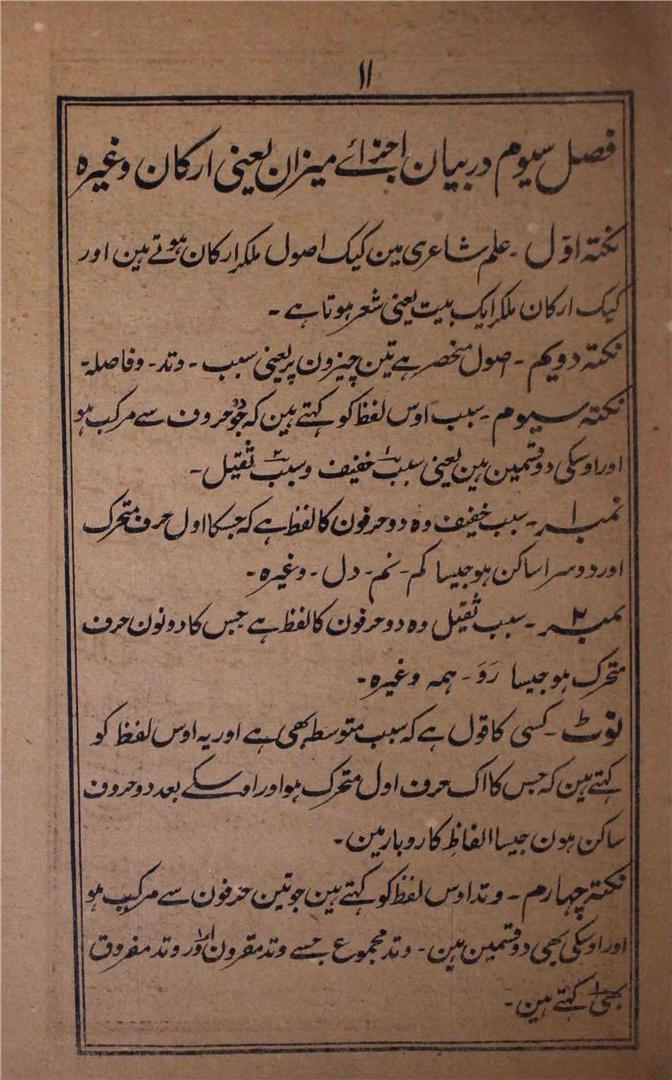 ۱۱
فصل سیوم در بیان اجزائے میزان یعنی ارکان وغیرہ
نکتہ اوّل ۔ علم شاعری مین کیک اصول ملکر ارکان ہوتے ہین اور
کیک ارکان ملکر ایک بیت یعنی شعر ہوتا ہے ۔
نکتہ دویم ۔ اصول منحصر ہے تین چیزون پر یعنی سبب ۔ وتد ۔ وفاصلہ ۔
نکتہ سیوم ۔ سبب اوس لفظ کو کہتے ہین کہ جو دو حروف سے مرکب ہو
اور اوسکی دو قسمین ہین یعنی سبب۱ خفیف و سبب۲ ثقیل ۔
نمبر ۱ ۔ سبب خفیف وہ دو حرفون کا لفظ ہے کہ جسکا اول حرف متحرک
اور دوسرا ساکن ہو جیسا کم ۔ نم ۔ دل ۔ وغیرہ ۔
نمبر ۲ ۔ سبب ثقیل وہ دو حرفون کا لفظ ہے جس کا دونون حرف
متحرک ہو جیسا رَوَ ۔ ہمہ وغیرہ ۔
نوٹ ۔ کسی کا قول ہے کہ سبب متوسط بھی ہے اور یہ اوس لفظ کو
کہتے ہین کہ جس کا اک حرف اول متحرک ہو اور اوسکے بعد دو حروف
ساکن ہون جیسا الفاظِ کاروبار مین ۔
نکتہ چہارم ۔ وتد اوس لفظ کو کہتے ہین جو تین حرفون سے مرکب ہو
اور اوسکی بھی دو قسمین ہین ۔ وتد مجموع جسے وتد مقرون اور وتد مفروق
بھی کہتے ہین ۔